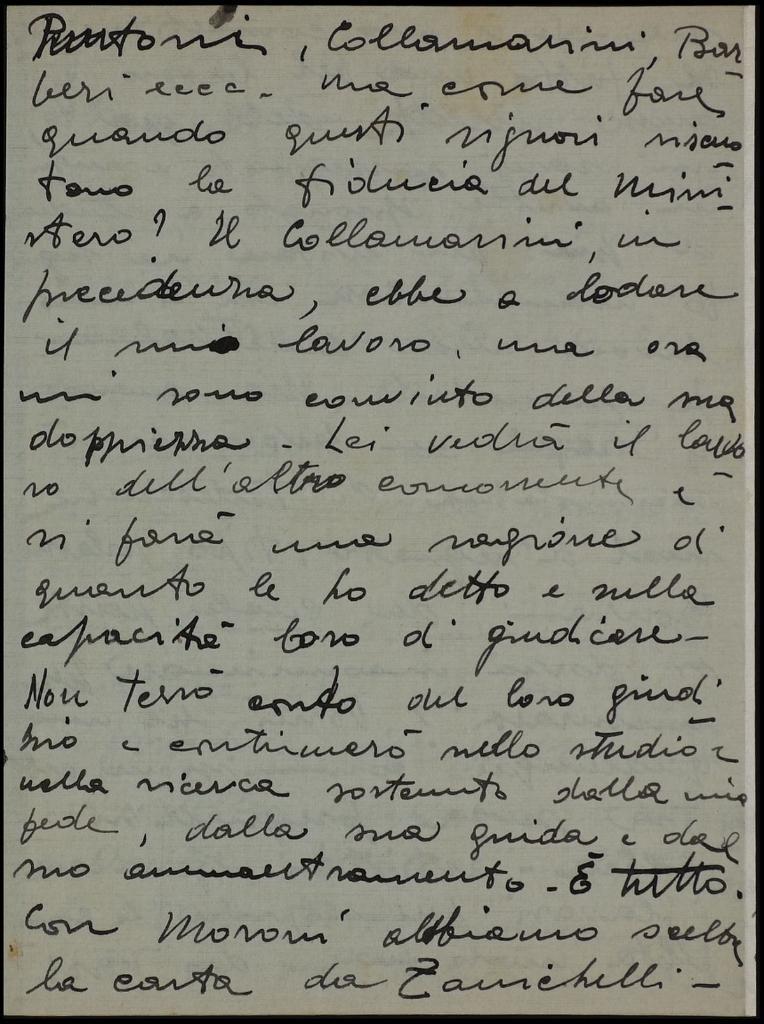 Pantoni, Collamarini, Bar
beri ecc. ma come fare
quando questi signori riscuo
tono la fiducia del Mini
stero? Il Collamarini, in
precedenza, ebbe a lodare
il mio lavoro, ma ora
mi sono convinto della sua
doppiezza - Lei vedrà il lavo
ro dell'altro concorrente e
si farà una ragione di
quanto le ho detto e sulla
capacità loro di giudicare -
Non terrò conto del loro giudi
zio e continuerò nello studio e
nella ricerca sostenuto dalla mia
fede, dalla sua guida e dal
suo ammaestramento. È tutto.
Con Moroni abbiamo scelto
la carta da Zanichelli -